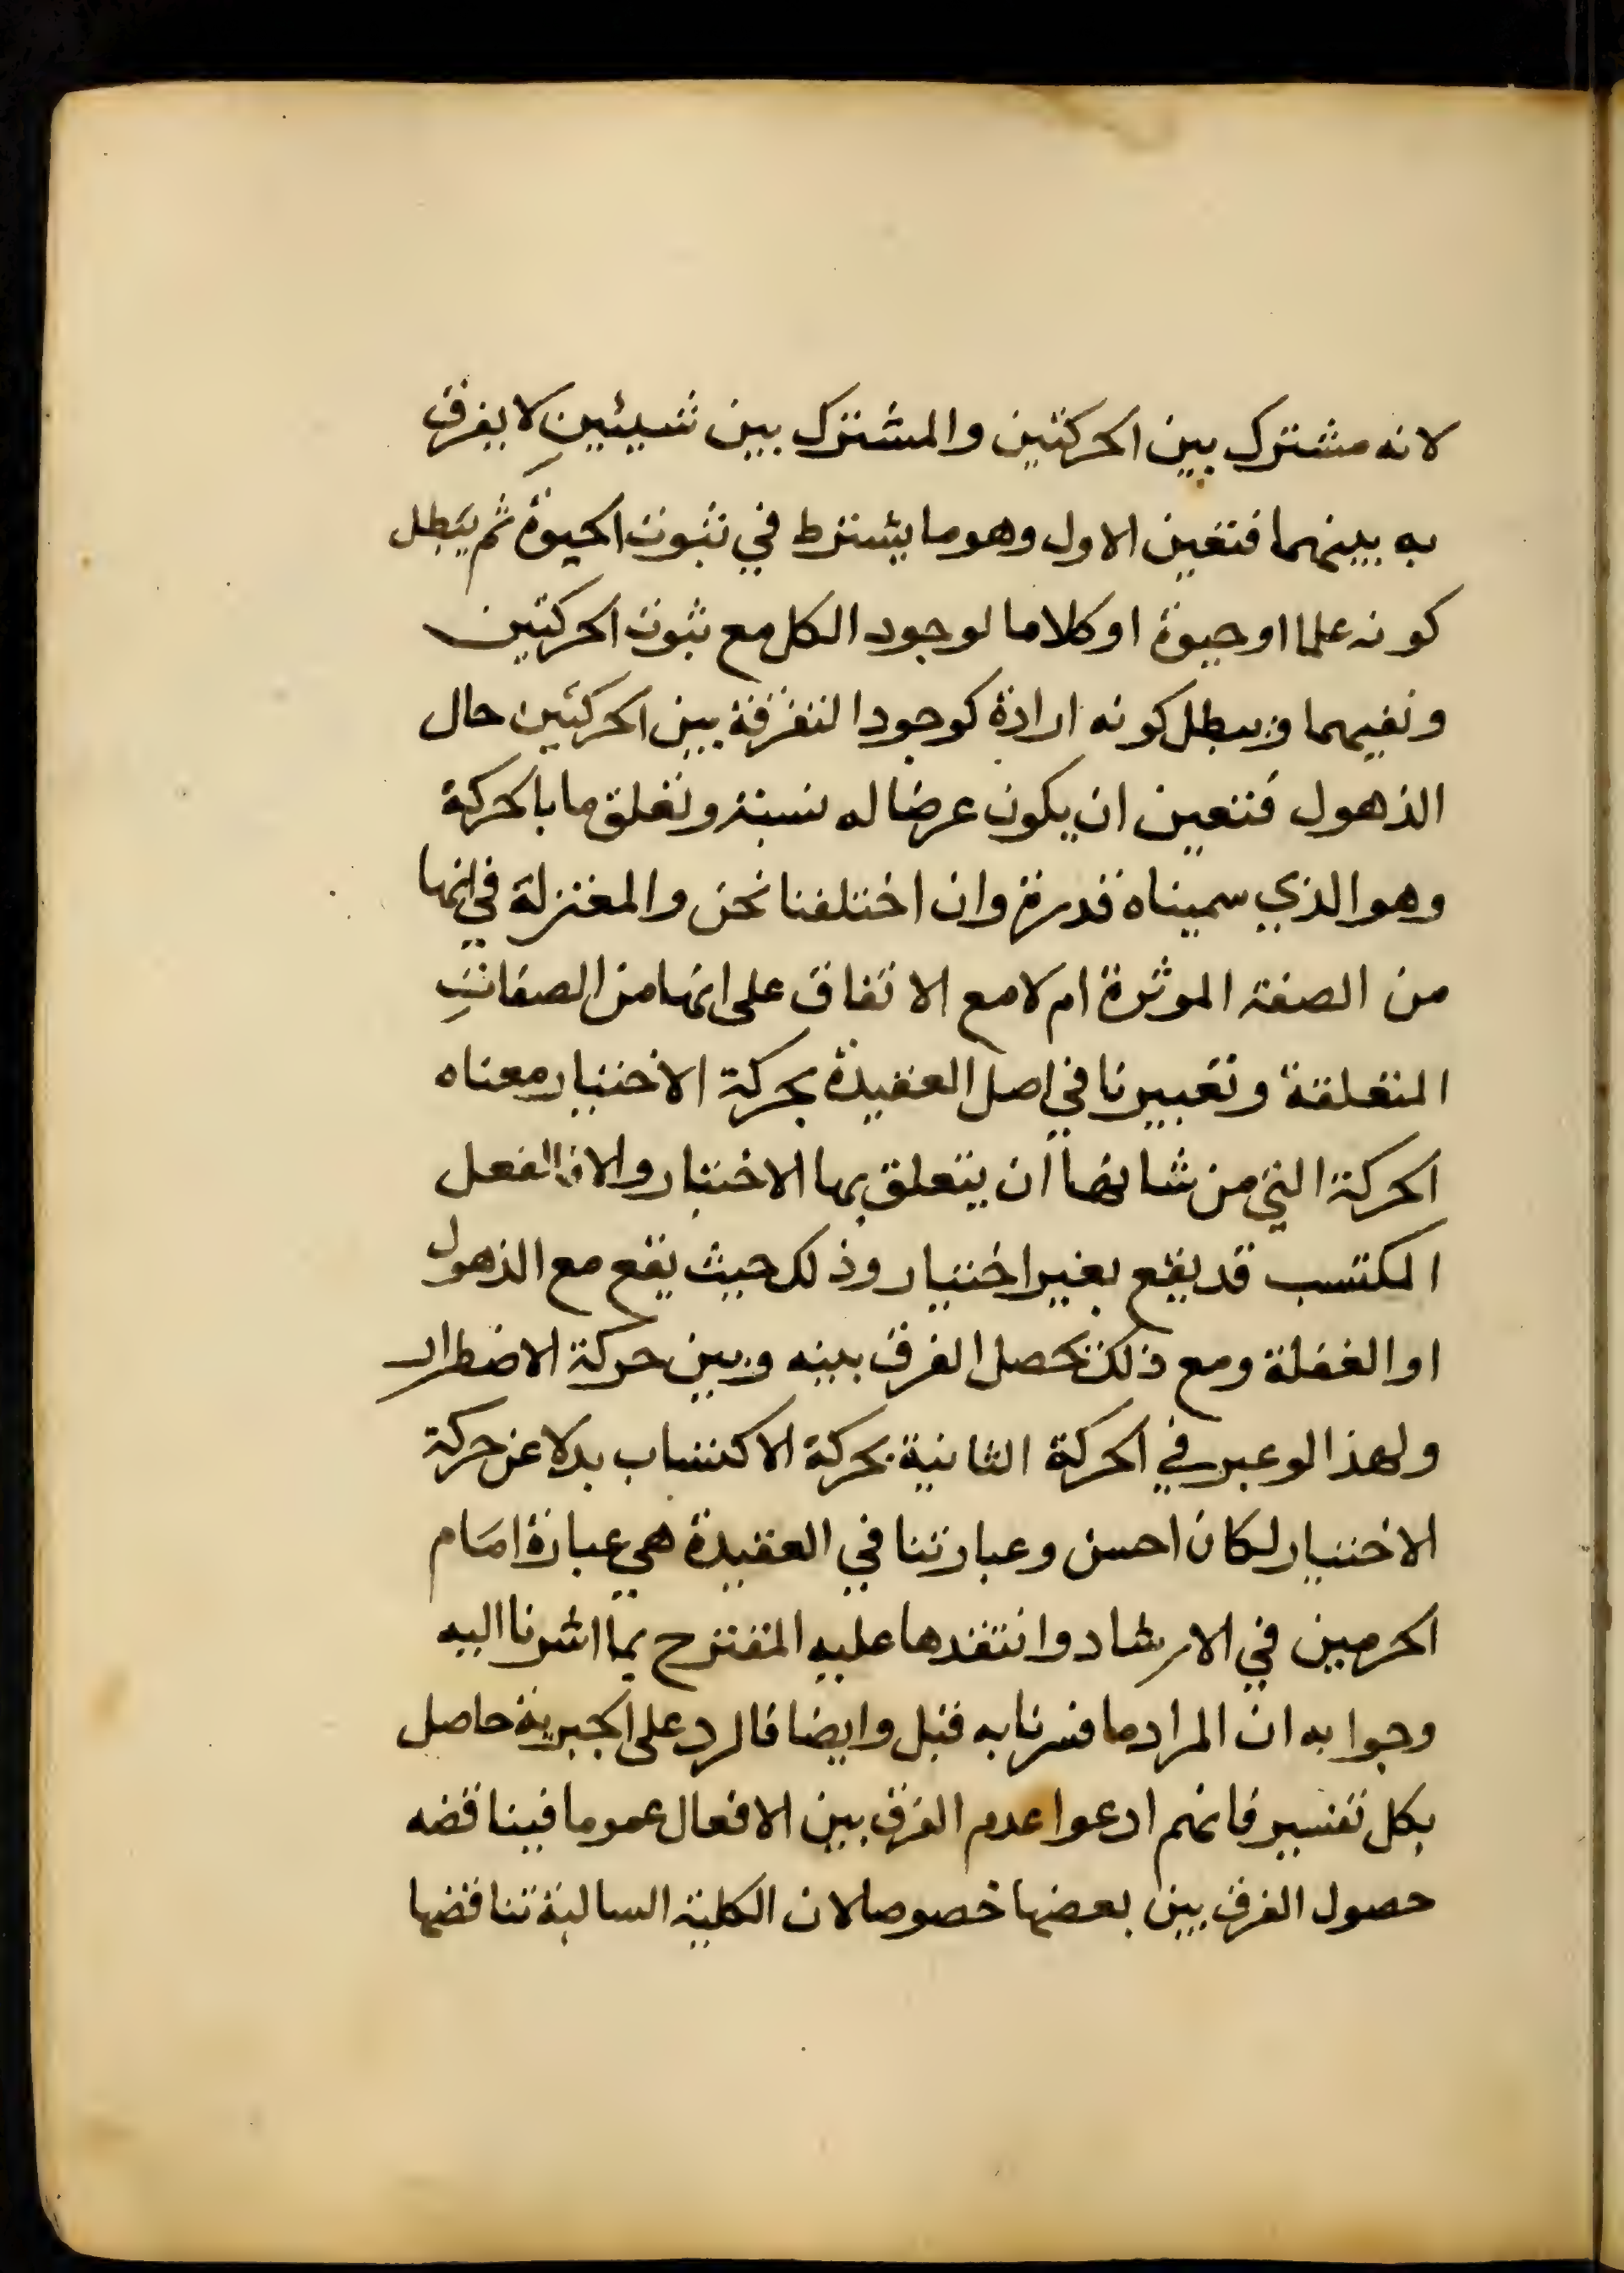 لانه مشترك بين الحركتين والمشترك بين شيئين لا يفرق
به بينهما فتعين الاول وهو ما يشترط في ثبوت الحيوة ثم يبطل
كونه علما او حيوة او كلاما لوجود الكل مع ثبوت الحركتين
ونفيهما ويبطل كونه ارادة كوجود التفرقة بين الحركتين حال
الذهول فتعين ان يكون عرضا له نسبة وتعلق ما بالحركة
وهو الذي سميناه قدرة وان اختلفنا نحن والمعتزلة في انها
من الصفة الموثرة ام لا مع الاتفاق على انها من الصفات
المتعلقة وتعبيرنا في اصل العقيدة بحركة الاختيار معناه
الحركة التي من شانها ان يتعلق بها الاختيار والا فالفعل
المكتسب قد يقع بغير اختيار وذلك حيث يقع مع الذهول
او الغفلة ومع ذلك يحصل الفرق بينه وبين حركة الاضطرار
ولهذا لو عبر في الحركة الثانية بحركة الاكتساب بدلا عن حركة
الاختيار لكان احسن وعبارتنا في العقيدة هي عبارة امام
الحرمين في الارشاد وانتقدها عليه المقترح بما اشرنا اليه
وجوابه ان المراد ما فسرنا به قبل وايضا فالرد على الجبرية حاصل
بكل تفسير فانهم ادعوا عدم الفرق بين الافعال عموما فيناقضه
حصول الفرق بين بعضها خصوصا لان الكلية السالبة تناقضها